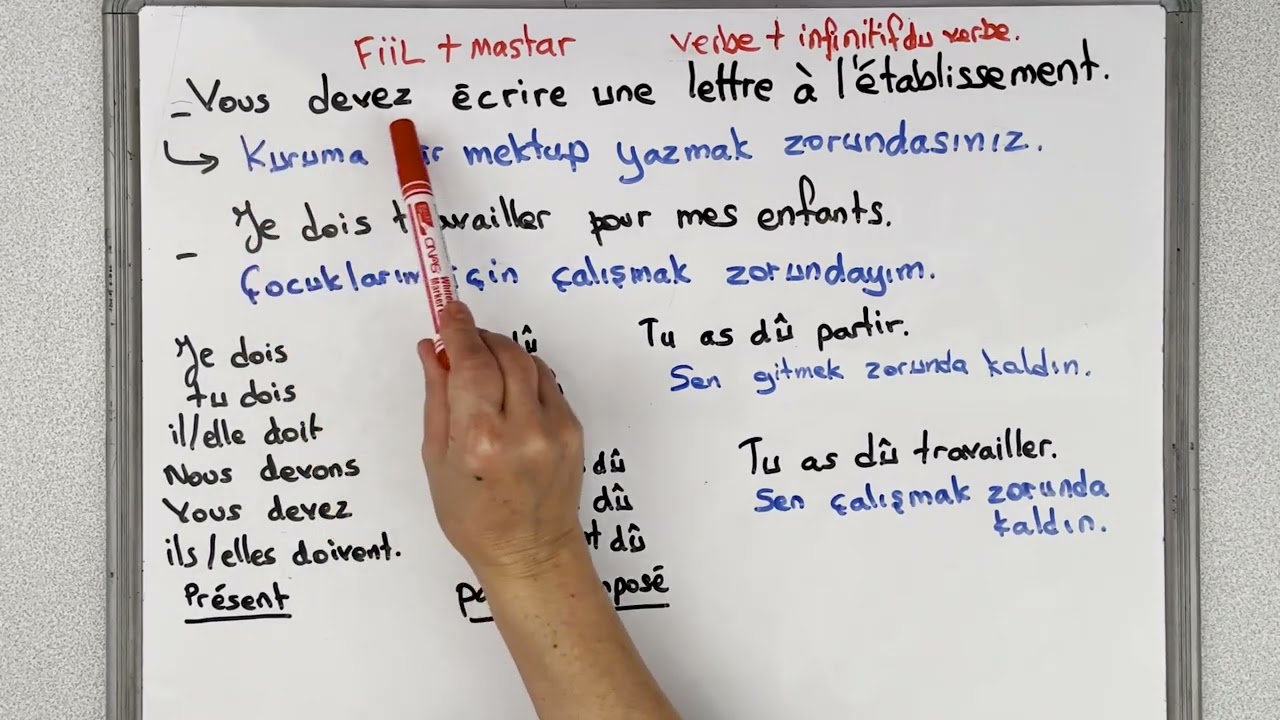 FiiL + mastar verbe + infinitif du verbe.
- Vous devez écrire une lettre à l'établissement.
Kuruma mektup yazmak zorundasınız.
- Je dois travailler pour mes enfants.
Çocuklarım için çalışmak zorundayım.
Je dois dû Tu as dû partir.
tu dois Sen gitmek zorunda kaldın.
il/elle doit
Nous devons dû Tu as dû travailler.
Vous devez dû Sen çalışmak zorunda
kaldın.
ils/elles doivent. dû
Présent